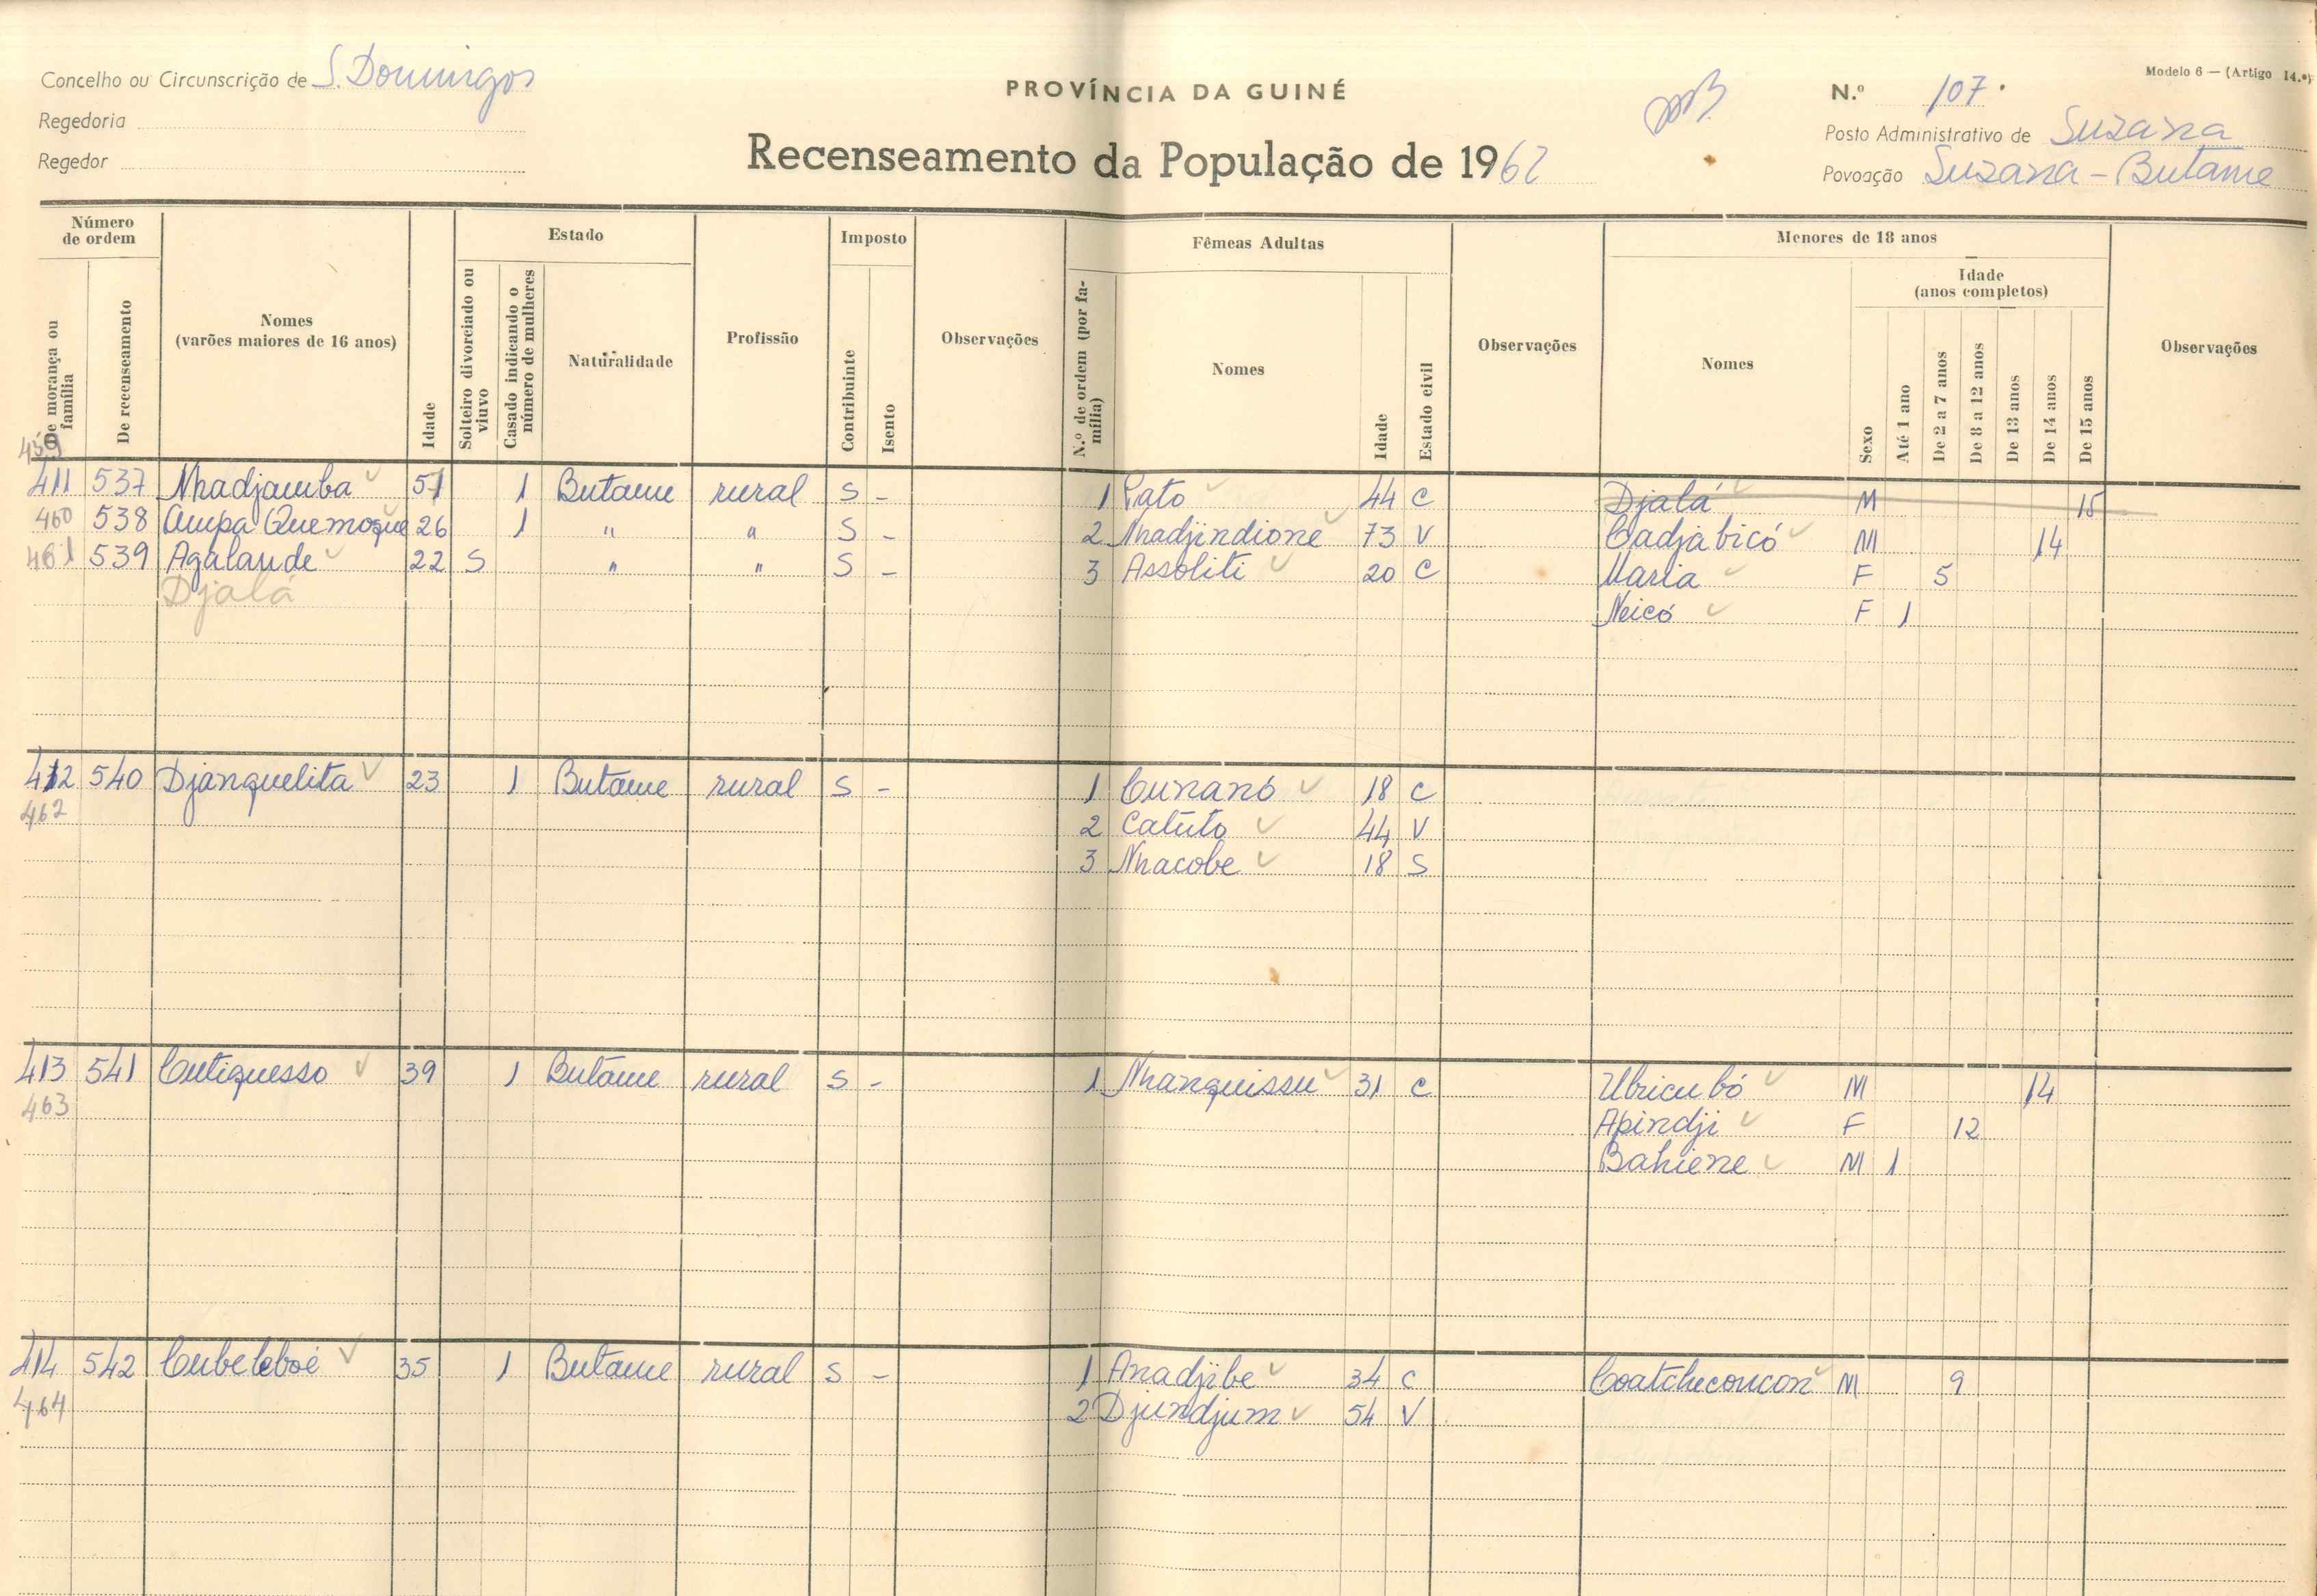 Modelo 6 — (Artigo 14.º)
Concelho ou Circunscrição de S. Domingos
PROVÍNCIA DA GUINÉ
N.º 107.
Regedoria
Posto Administrativo de Suzana
Regedor
Recenseamento da População de 1962
Povoação Suzana - Butame
Número de ordem
De morança ou família
De recenseamento
Nomes (varões maiores de 16 anos)
Idade
Estado
Solteiro divorciado ou viuvo
Casado indicando o número de mulheres
Naturalidade
Profissão
Imposto
Contribuinte
Isento
Observações
Fêmeas Adultas
N.º de ordem (por família)
Nomes
Idade
Estado civil
Observações
Menores de 18 anos
Nomes
Sexo
Idade (anos completos)
Até 1 ano
De 2 a 7 anos
De 8 a 12 anos
De 13 anos
De 14 anos
De 15 anos
Observações
459
411 537 Nhadjamba 51 1 Butame rural S - 1 Pato 44 C Djalá M 15
460 538 Ampa Quemoque 26 1 " " S - 2 Nhadjindione 73 V Cadjabicó M 14
461 539 Agalande 22 S " " S - 3 Assoliti 20 C Maria F 5
Djalá Neicó F 1
412 540 Djanquelita 23 1 Butame rural S - 1 Cunanó 18 C
462 2 Catuto 44 V
3 Nhacobe 18 S
413 541 Cutiquesso 39 1 Butame rural S - 1 Nhanquissu 31 C Ubricubó M 14
463 Apindji F 12
Bahiene M 1
414 542 Cubeleboé 35 1 Butame rural S - 1 Anadjibe 34 C Coatcheconcon M 9
464 2 Djundjum 54 V